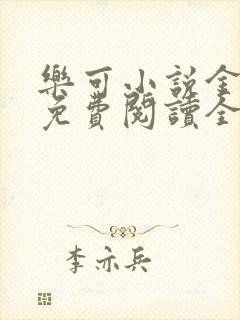 樂可小説全
免費閱讀全
李亦兵